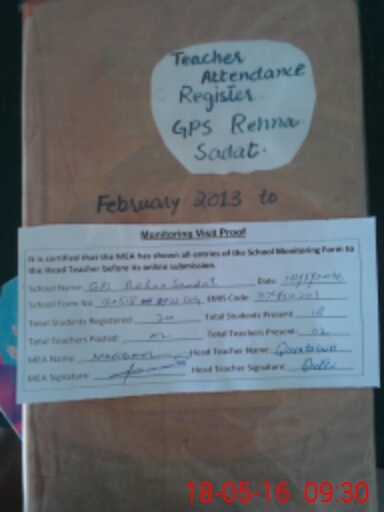 Teacher
Attendance
Register.
GPS Rehna
Sadat.
February 2013 to
Monitoring Visit Proof
It is certified that the MEA has shown all entries of the School Monitoring Form to
the Head Teacher before its online submission.
School Name: GPS Rehna Saadat Date:
School Form No. EMIS Code:
Total Students Registered: 20 Total Students Present: 18
Total Teachers Posted: 02 Total Teachers Present: 02
MEA Name: Head Teacher Name:
MEA Signature: Head Teacher Signature:
18-05-16 09:30